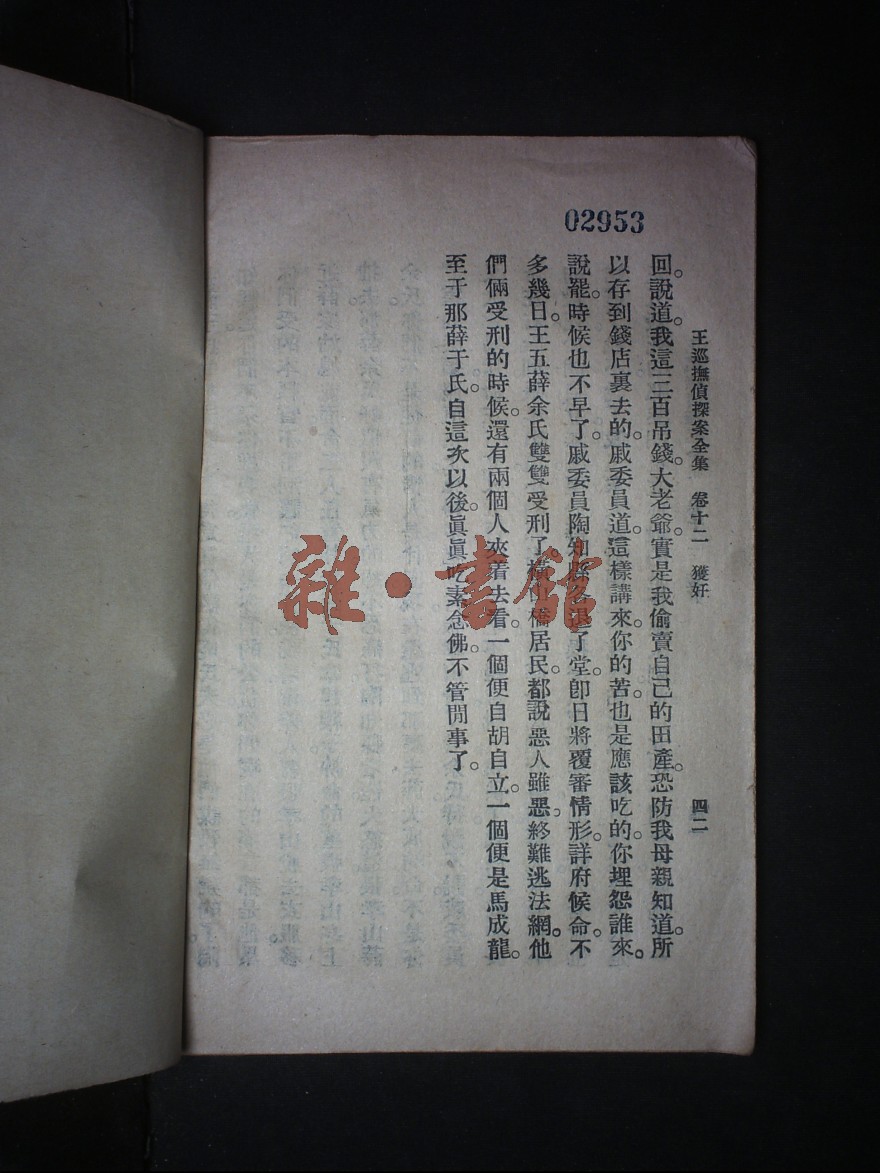 02953
王巡撫偵探案全集　卷十二　獲奸　四二
回。說道。我這三百吊錢。大老爺。實是我偷賣自己的田產。恐防我母親知道。所
以存到錢店裏去的。戚委員道。這樣講來。你的苦。也是應該吃的。你埋怨誰來。
說罷。時候也不早了。戚委員陶知縣各退了堂。卽日將覆審情形。詳府候命。不
多幾日。王五薛余氏雙雙受刑了。橋居民。都說惡人雖惡。終難逃法網。他
們倆受刑的時候。還有兩個人夾着去看。一個便自胡自立。一個便是馬成龍。
至于那薛于氏。自這次以後。眞眞吃素念佛。不管閒事了。
雜·書館